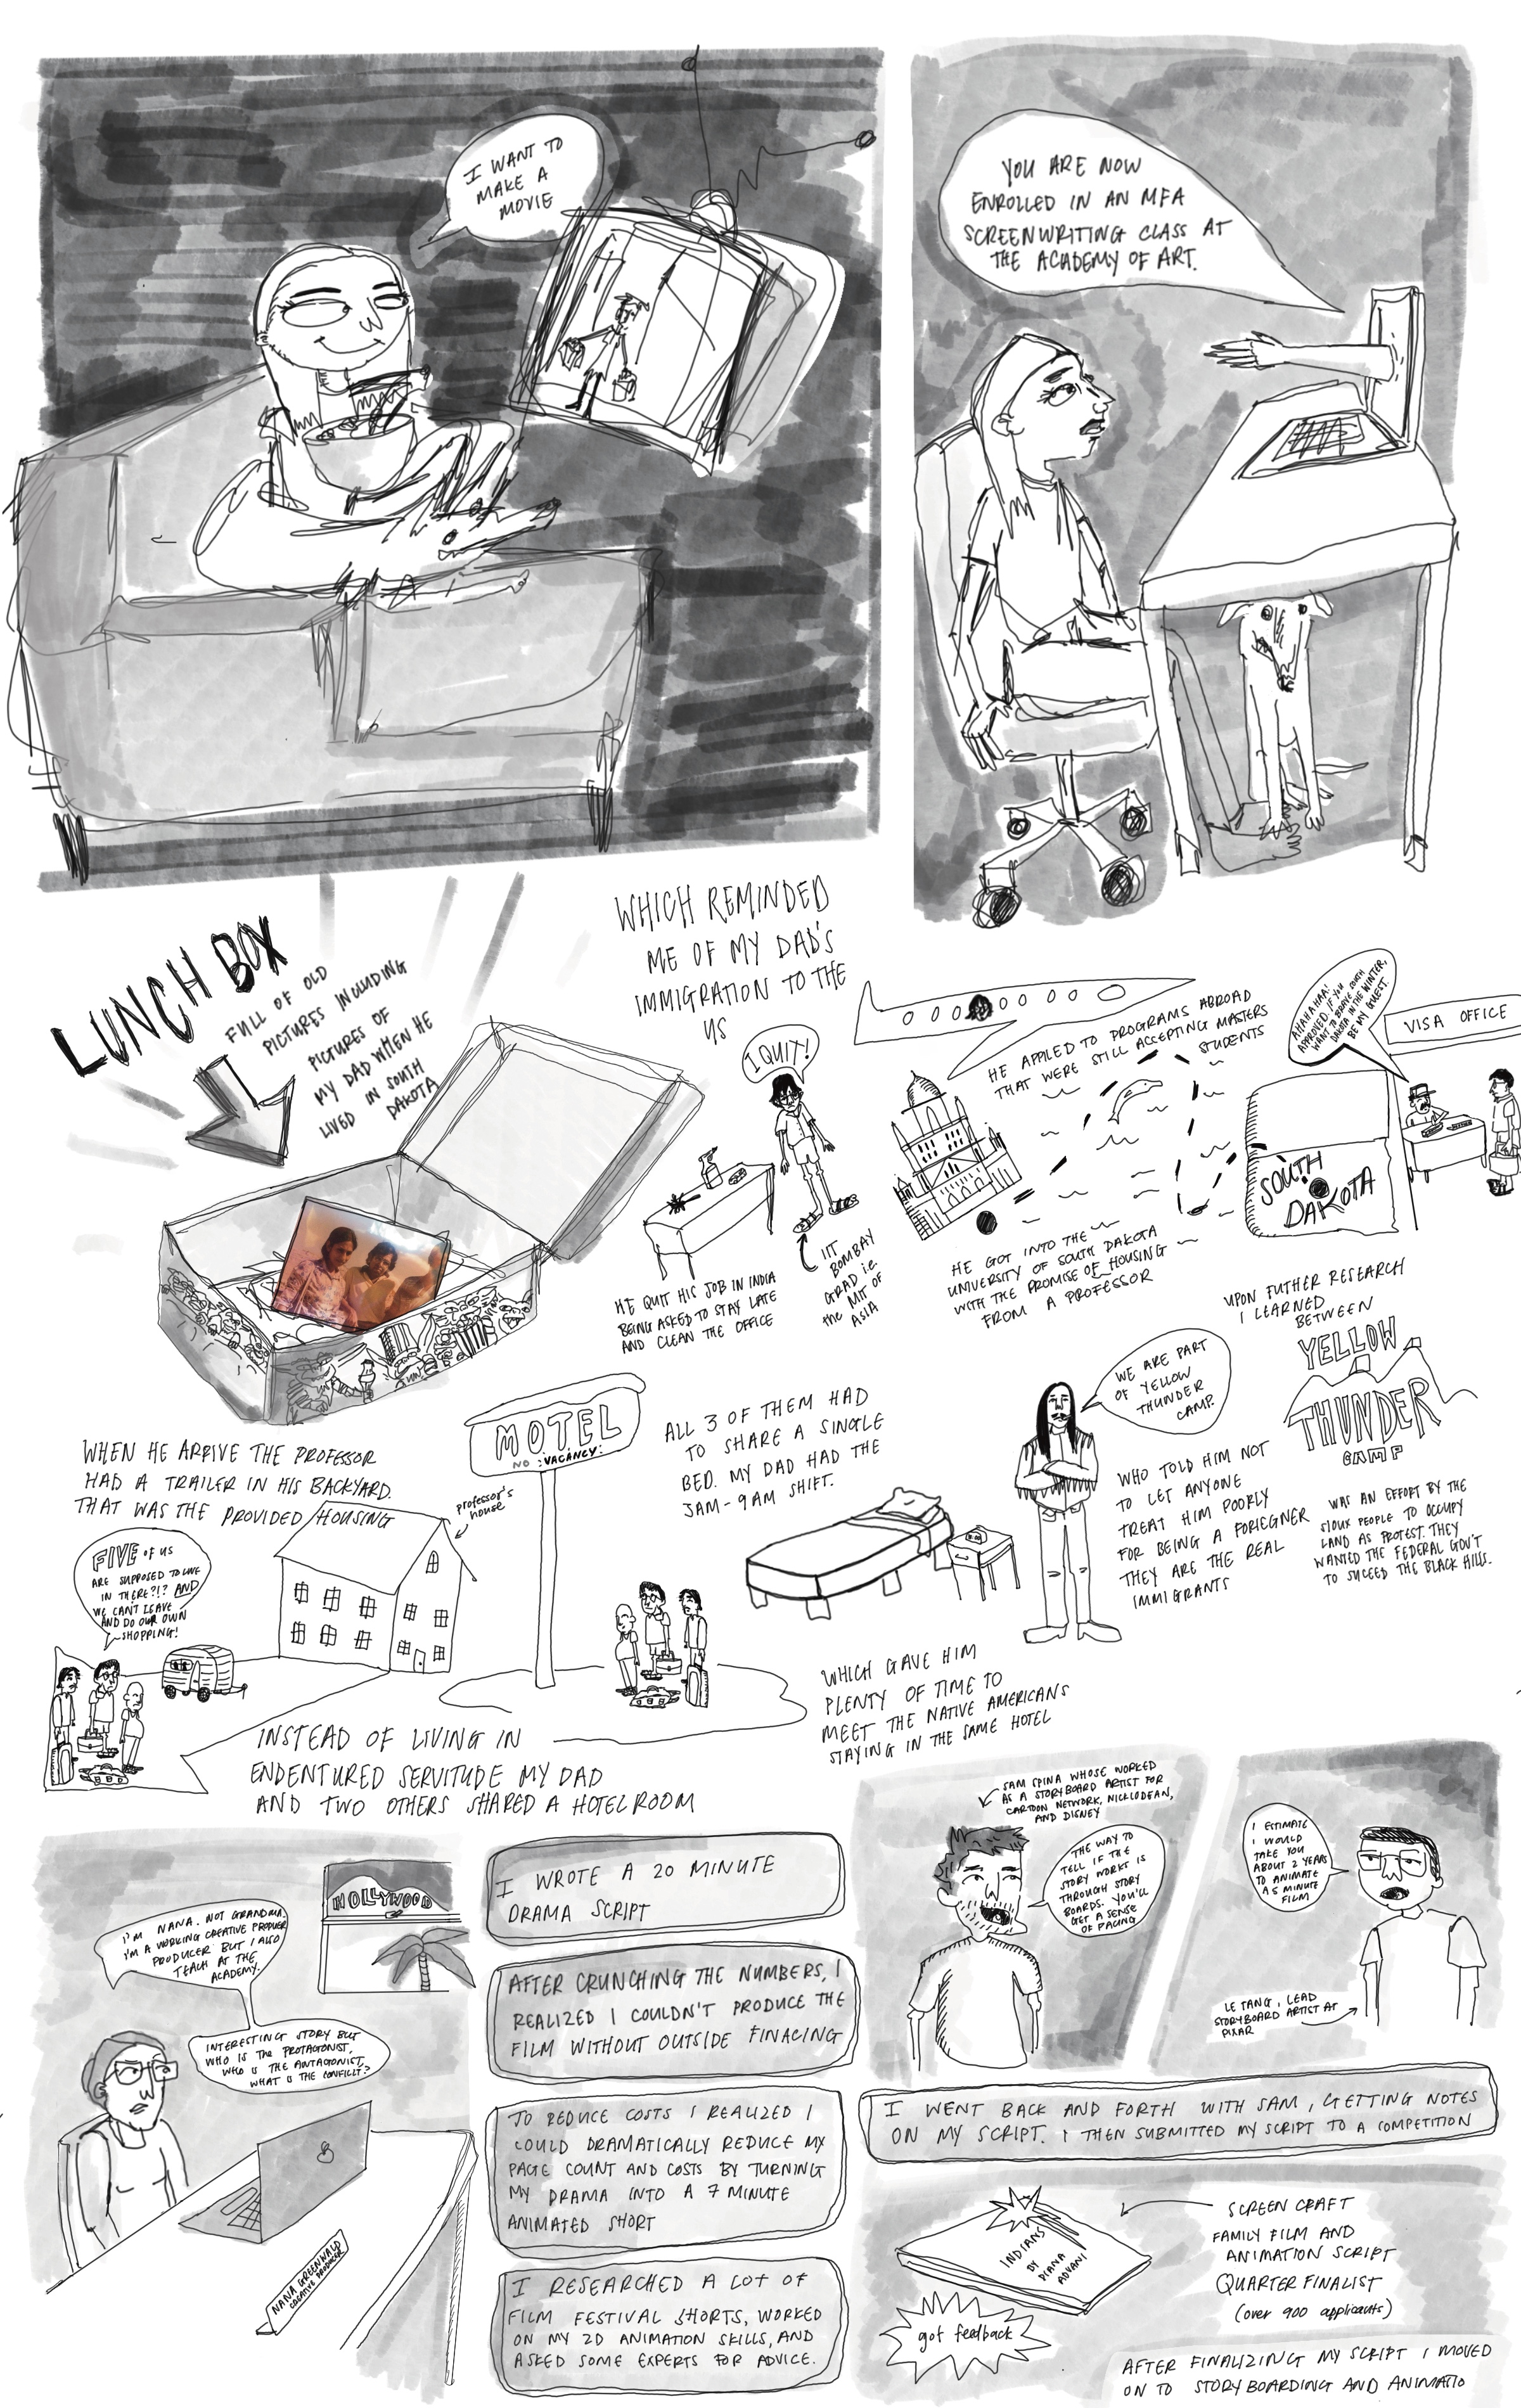 I WANT TO
MAKE A
MOVIE
YOU ARE NOW
ENROLLED IN AN MFA
SCREENWRITING CLASS AT
THE ACADEMY OF ART.
LUNCH BOX
FULL OF OLD
PICTURES INCLUDING
PICTURES OF
MY DAD WHEN HE
LIVED IN SOUTH
DAKOTA
WHICH REMINDED
ME OF MY DAD'S
IMMIGRATION TO THE
US
I QUIT!
HE QUIT HIS JOB IN INDIA
BEING ASKED TO STAY LATE
AND CLEAN THE OFFICE
IIT
BOMBAY
GRAD i.e.
the MIT OF
ASIA
HE APPLIED TO PROGRAMS ABROAD
THAT WERE STILL ACCEPTING MASTERS
STUDENTS
HE GOT INTO THE
UNIVERSITY OF SOUTH DAKOTA
WITH THE PROMISE OF HOUSING
FROM A PROFESSOR
SOUTH
DAKOTA
AHAHAHAA!
APPROVED. IF YOU
WANT TO BRAVE SOUTH
DAKOTA IN THE WINTER,
BE MY GUEST.
VISA OFFICE
WHEN HE ARRIVE THE PROFESSOR
HAD A TRAILER IN HIS BACKYARD.
THAT WAS THE PROVIDED HOUSING
professor's
house
FIVE OF US
ARE SUPPOSED TO LIVE
IN THERE?!? AND
WE CAN'T LEAVE
AND DO OUR OWN
SHOPPING!
INSTEAD OF LIVING IN
ENDENTURED SERVITUDE MY DAD
AND TWO OTHERS SHARED A HOTEL ROOM
MOTEL
NO :VACANCY:
ALL 3 OF THEM HAD
TO SHARE A SINGLE
BED. MY DAD HAD THE
3AM-9AM SHIFT.
WHICH GAVE HIM
PLENTY OF TIME TO
MEET THE NATIVE AMERICANS
STAYING IN THE SAME HOTEL
WE ARE PART
OF YELLOW
THUNDER
CAMP.
WHO TOLD HIM NOT
TO LET ANYONE
TREAT HIM POORLY
FOR BEING A FOREIGNER
THEY ARE THE REAL
IMMIGRANTS
UPON FUTHER RESEARCH
I LEARNED
BETWEEN
YELLOW
THUNDER
CAMP
WAS AN EFFORT BY THE
SIOUX PEOPLE TO OCCUPY
LAND AS PROTEST. THEY
WANTED THE FEDERAL GOV'T
TO SUCEED THE BLACK HILLS.
I'M NANA. NOT GRANDMA.
I'M A WORKING CREATIVE PRODUER
PRODUCER BUT I ALSO
TEACH AT THE
ACADEMY.
INTERESTING STORY BUT
WHO IS THE PROTAGONIST,
WHO IS THE ANTAGONIST,
WHAT IS THE CONFLICT?
HOLLYWOOD
NANA GREENWALD
CREATIVE PRODUCER
I WROTE A 20 MINUTE
DRAMA SCRIPT
AFTER CRUNCHING THE NUMBERS, I
REALIZED I COULDN'T PRODUCE THE
FILM WITHOUT OUTSIDE FINACING
TO REDUCE COSTS I REALIZED I
COULD DRAMATICALLY REDUCE MY
PAGE COUNT AND COSTS BY TURNING
MY DRAMA INTO A 7 MINUTE
ANIMATED SHORT
I RESEARCHED A LOT OF
FILM FESTIVAL SHORTS, WORKED
ON MY 2D ANIMATION SKILLS, AND
ASKED SOME EXPERTS FOR ADVICE.
SAM SPINA WHOSE WORKED
AS A STORYBOARD ARTIST FOR
CARTOON NETWORK, NICKLODEAN,
AND DISNEY
THE WAY TO
TELL IF THE
STORY WORKS IS
THROUGH STORY
BOARDS. YOU'LL
GET A SENSE
OF PACING
I ESTIMATE
I WOULD
TAKE YOU
ABOUT 2 YEARS
TO ANIMATE
A 5 MINUTE
FILM
LE TANG, LEAD
STORYBOARD ARTIST AT
PIXAR
I WENT BACK AND FORTH WITH SAM, GETTING NOTES
ON MY SCRIPT. I THEN SUBMITTED MY SCRIPT TO A COMPETITION
INDIANS
BY
DIANA
ADVANI
SCREEN CRAFT
FAMILY FILM AND
ANIMATION SCRIPT
QUARTER FINALIST
(over 900 applicants)
got feedback
AFTER FINALIZING MY SCRIPT I MOVED
ON TO STORYBOARDING AND ANIMATIO